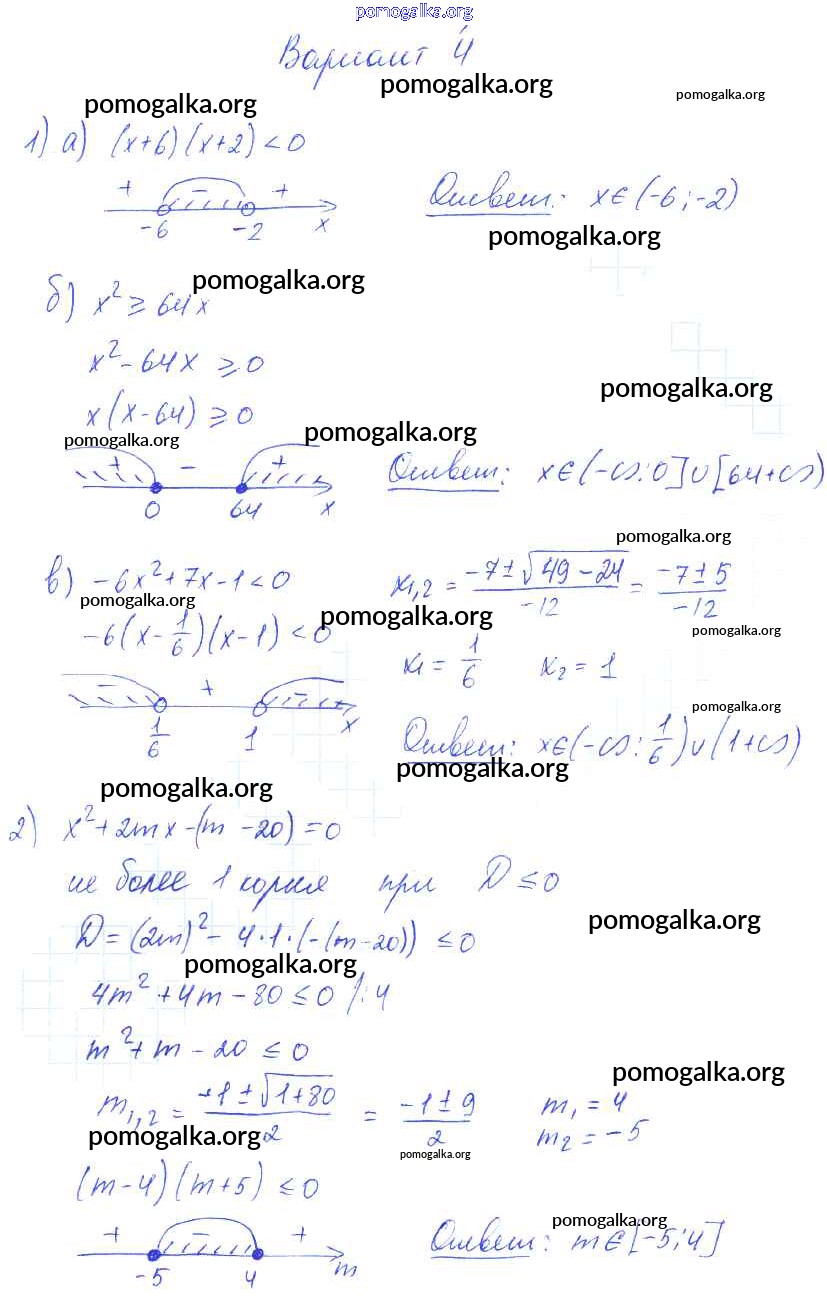 pomogalka.org
Вариант 4
pomogalka.org
pomogalka.org
pomogalka.org
1) а) (x+6)(x+2)<0
+ - +
-6 -2 x
Ответ: x∈(-6;-2)
pomogalka.org
pomogalka.org
б) x²≥64x
x²-64x ≥0
pomogalka.org
x(x-64) ≥0
pomogalka.org
pomogalka.org
+ - +
0 64 x
Ответ: x∈(-∞;0]∪[64+∞)
pomogalka.org
в) -6x²+7x-1<0
x1,2 = (-7±√(49-24))/(-12) = (-7±5)/(-12)
pomogalka.org
pomogalka.org
pomogalka.org
-6(x-1/6)(x-1)<0
x1=1/6 x2=1
- + -
1/6 1 x
pomogalka.org
Ответ: x∈(-∞;1/6)∪(1+∞)
pomogalka.org
pomogalka.org
2) x²+2mx-(m-20)=0
не более 1 корня при D≤0
pomogalka.org
D=(2m)²-4·1·(-(m-20)) ≤0
pomogalka.org
4m²+4m-80≤0 /:4
m²+m-20≤0
pomogalka.org
m1,2 = (-1±√(1+80))/2 = (-1±9)/2
m1=4
m2=-5
pomogalka.org
pomogalka.org
(m-4)(m+5)≤0
pomogalka.org
+ - +
-5 4 m
Ответ: m∈[-5;4]